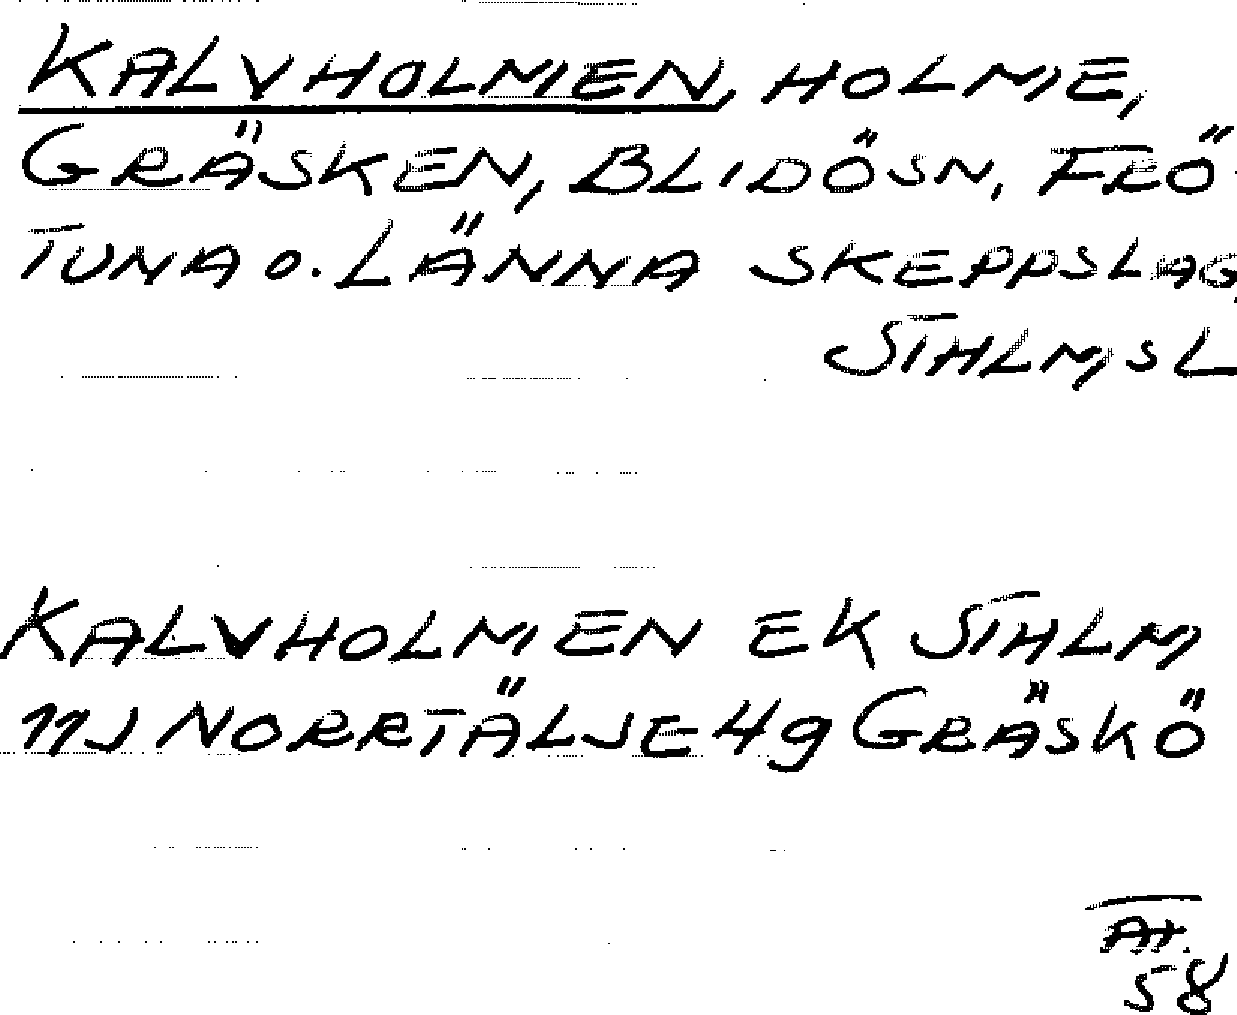 KALVHOLMEN, HOLME,
GRÄSKEN, BLIDÖSN, FRÖ-
TUNA O. LÄNNA SKEPPSLAG,
STHLM, SL
KALVHOLMEN EK STHLM
11J NORRTÄLJE 4g GRÄSKÖ
58